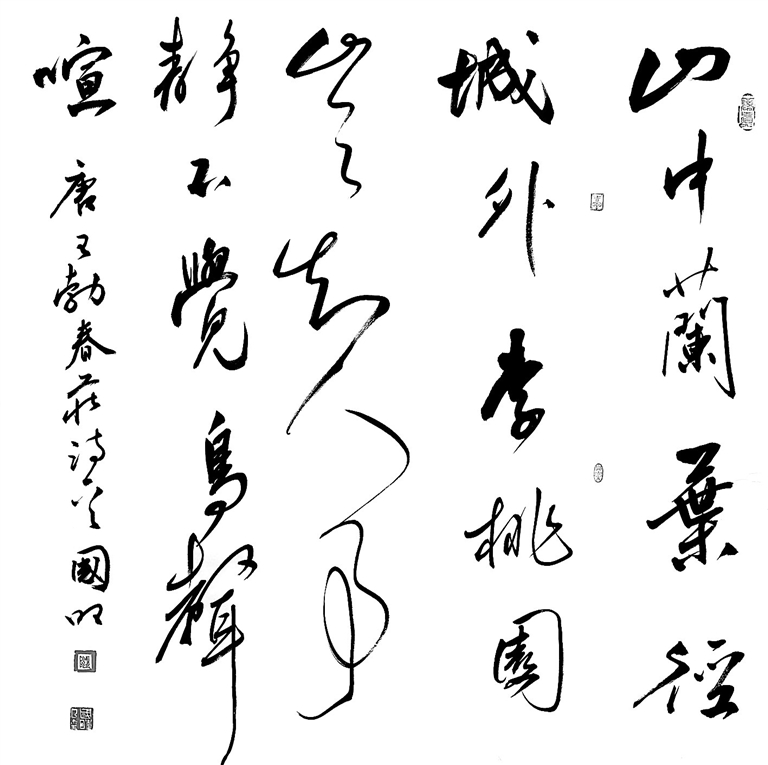 山中蘭葉徑
城外李桃園
豈知人事
靜不覺鳥聲
喧 唐王勃春莊詩 國